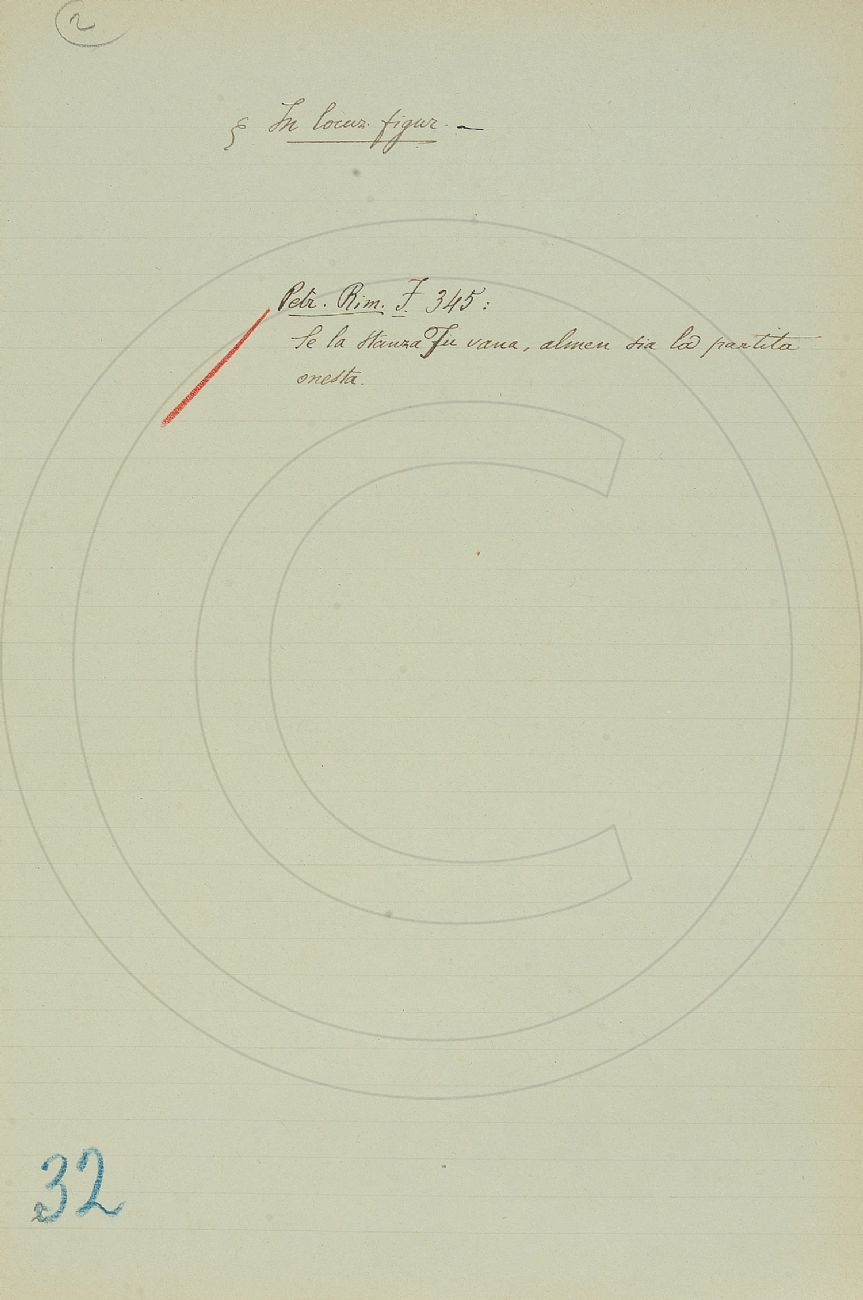 2
§ In locuz. figur. —
Petr. Rim. F. 345:
Se la stanza Fu vana, almen sia la partita
onesta.
32